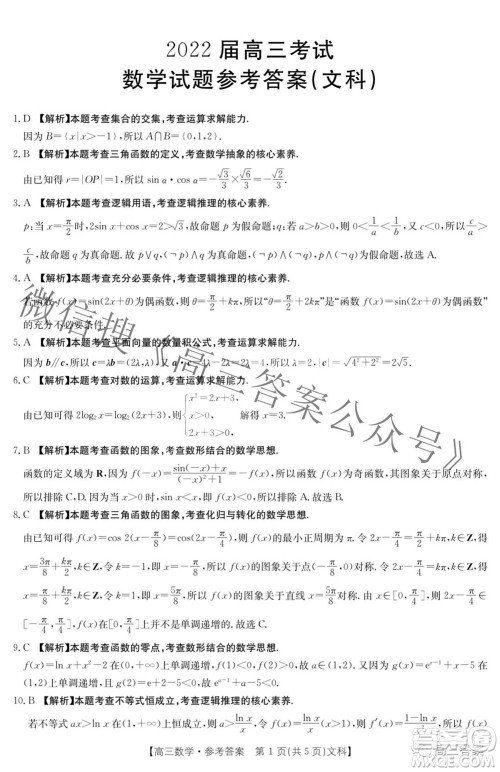 2022 届高三考试
数学试题参考答案(文科)
1. D 【解析】本题考查集合的交集,考查运算求解能力.
因为 B={x|x>-1},所以 A∩B={0,1,2}.
2. B 【解析】本题考查三角函数的定义,考查数学抽象的核心素养.
由已知得 r=|OP|=1,所以 sin α·cos α=-√3/3×√6/3=-√2/3.
3. A 【解析】本题考查逻辑用语,考查逻辑推理的核心素养.
p:当 x=π/2 时,2sin x+cos x=2>√3,故命题 p 为假命题.q:若 a>b>0,则 0<1/a<1/b,又 c<0,所以 c/a>
c/b,故命题 q 为真命题.故 p∨q,(¬p)∧q,(¬p)∨(¬q)为真命题,p∧(¬q)为假命题,故选 A.
4. A 【解析】本题考查充分必要条件,考查逻辑推理的核心素养.
若函数 f(x)=sin(2x+θ)为偶函数,则 θ=π/2+kπ,所以“θ=π/2+kπ”是“函数 f(x)=sin(2x+θ)为偶函数”
的充分不必要条件.
5. A 【解析】本题考查平面向量的数量积公式,考查运算求解能力.
因为 b∥c,所以 c=λb=(2λ,λ),又 a·c=4λ-2λ=2λ=4,所以 λ=2,|c|=√(4²+2²)=2√5.
6. C 【解析】本题考查对数的运算,考查运算求解能力.
由已知可得 2log₂x=log₂(2x+3),则 {x²=2x+3, x>0, 2x+3>0, 解得 x=3.
7. B 【解析】本题考查函数的图象,考查数形结合的数学思想.
函数的定义域为 R,因为 f(-x)=(sin(-x)+x)/((-x)²+1)=-f(x),所以 f(x)为奇函数,其图象关于原点对称,
所以排除 C,D.因为当 x>0 时,sin x<x,即 f(x)<0,所以排除 A,故选 B.
8. C 【解析】本题考查三角函数的图象,考查化归与转化的数学思想.
由已知可得 f(x)=cos 2(x-π/8)=cos(2x-π/4),所以 f(x)的最小正周期为 π.令 2x-π/4=π/2+kπ,k∈Z,得
x=3π/8+kπ/2,k∈Z,令 k=0,即 f(x)的图象关于点(3π/8,0)对称.令 2x-π/4=kπ,k∈Z,得
x=π/8+kπ/2,k∈Z,令 k=1,即 x=5π/8,所以 f(x)的图象关于直线 x=5π/8对称.当 x=π/8∈
[-π/4,π/4]时,f(x)取得最大值,所以 f(x)在[-π/4,π/4]上并不是单调递增,故选 C.
9. C 【解析】本题考查函数的零点,考查数形结合的数学思想.
f(x)=ln x+x²-2 在(0,+∞)上单调递增,f(1)<0,f(2)>0,
10. B 【解析】本题考查不等式恒成立,考查逻辑推理的核心素养.
【高三数学·参考答案 第 1 页(共 5 页)文科】
微信搜《高三答案公众号》